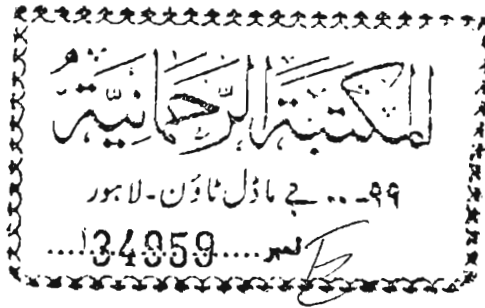 المکتبۃ الرحمانیۃ
۹۹-.. جے ماڈل ٹاؤن۔لاہور
نمبر.....34959....